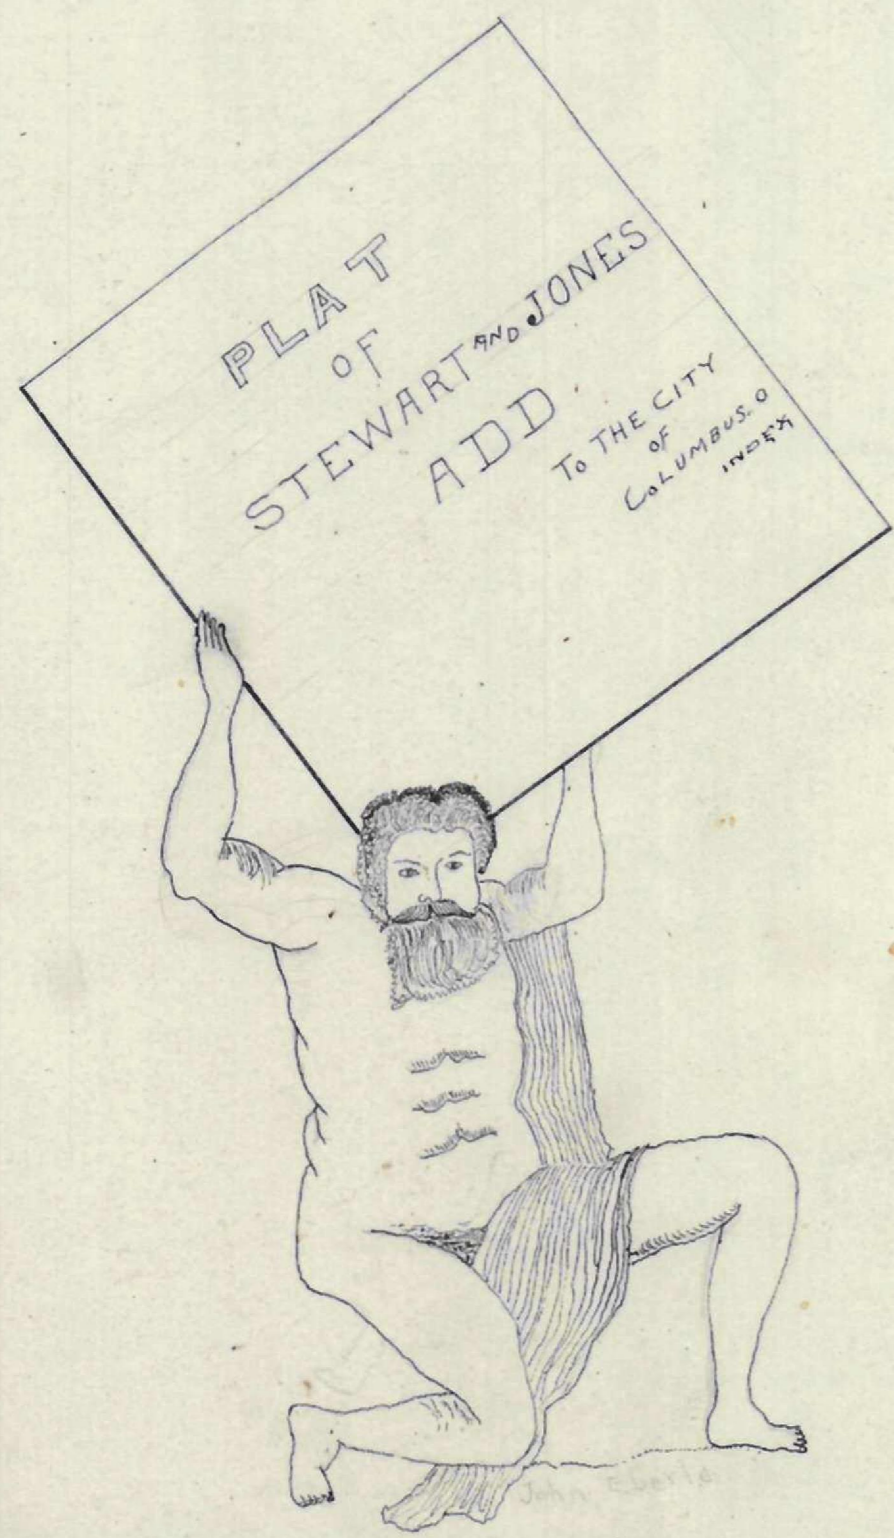 PLAT
OF
STEWART AND JONES
ADD
TO THE CITY
OF
COLUMBUS. O
INDEX
John Eberle